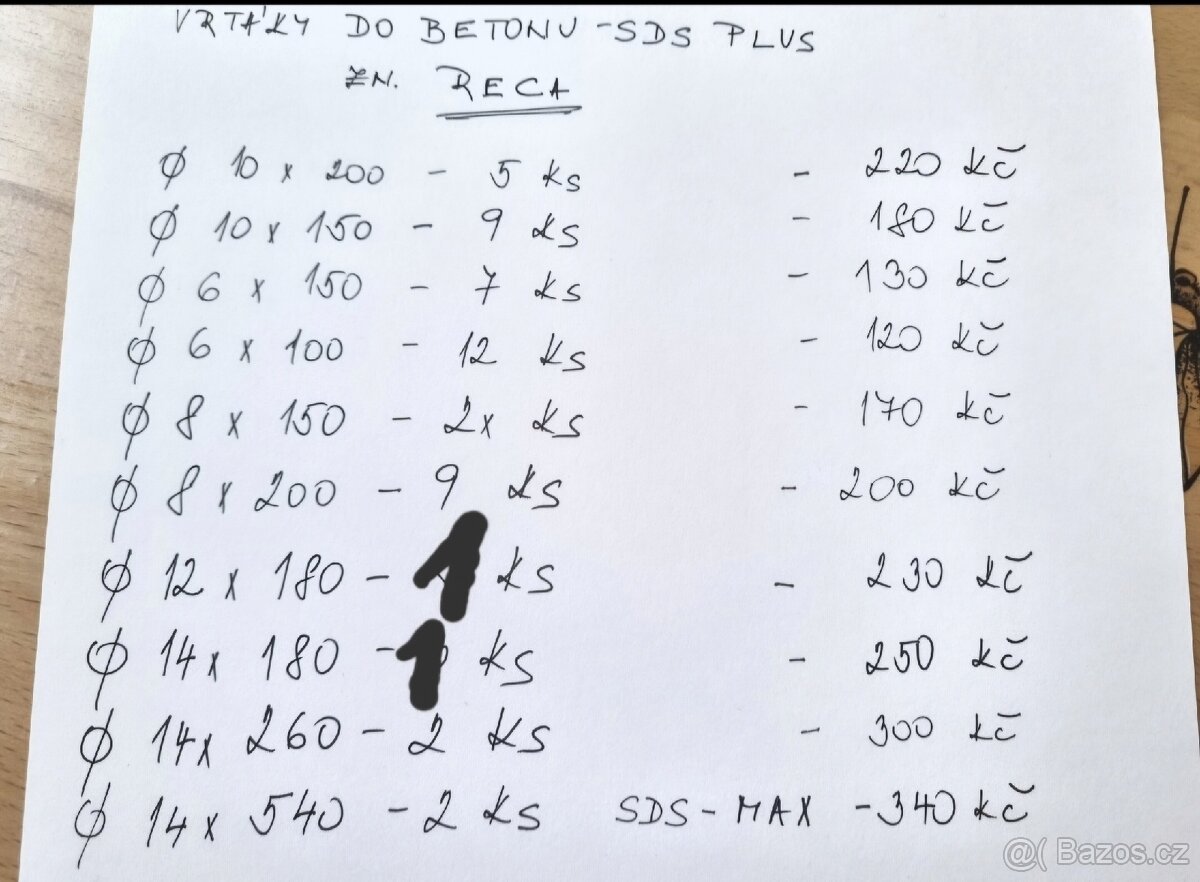 VRTÁKY DO BETONU - SDS PLUS
ZN. RECA
Ø 10 x 200 - 5 ks - 220 kč
Ø 10 x 150 - 9 ks - 180 kč
Ø 6 x 150 - 7 ks - 130 kč
Ø 6 x 100 - 12 ks - 120 kč
Ø 8 x 150 - 2x ks - 170 kč
Ø 8 x 200 - 9 ks - 200 kč
Ø 12 x 180 - 1 ks - 230 kč
Ø 14 x 180 - 1 ks - 250 kč
Ø 14 x 260 - 2 ks - 300 kč
Ø 14 x 540 - 2 ks SDS-MAX - 340 kč
@( Bazos.cz